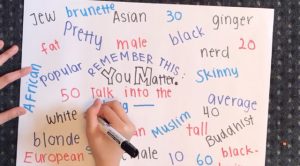 Jew brunette Asian 30 ginger
Pretty
fat male black nerd 20
African popular REMEMBER THIS: Skinny
You Matter.
50 Talk into the average
white 40
blonde Muslim tall Buddhist
European 10 60 black